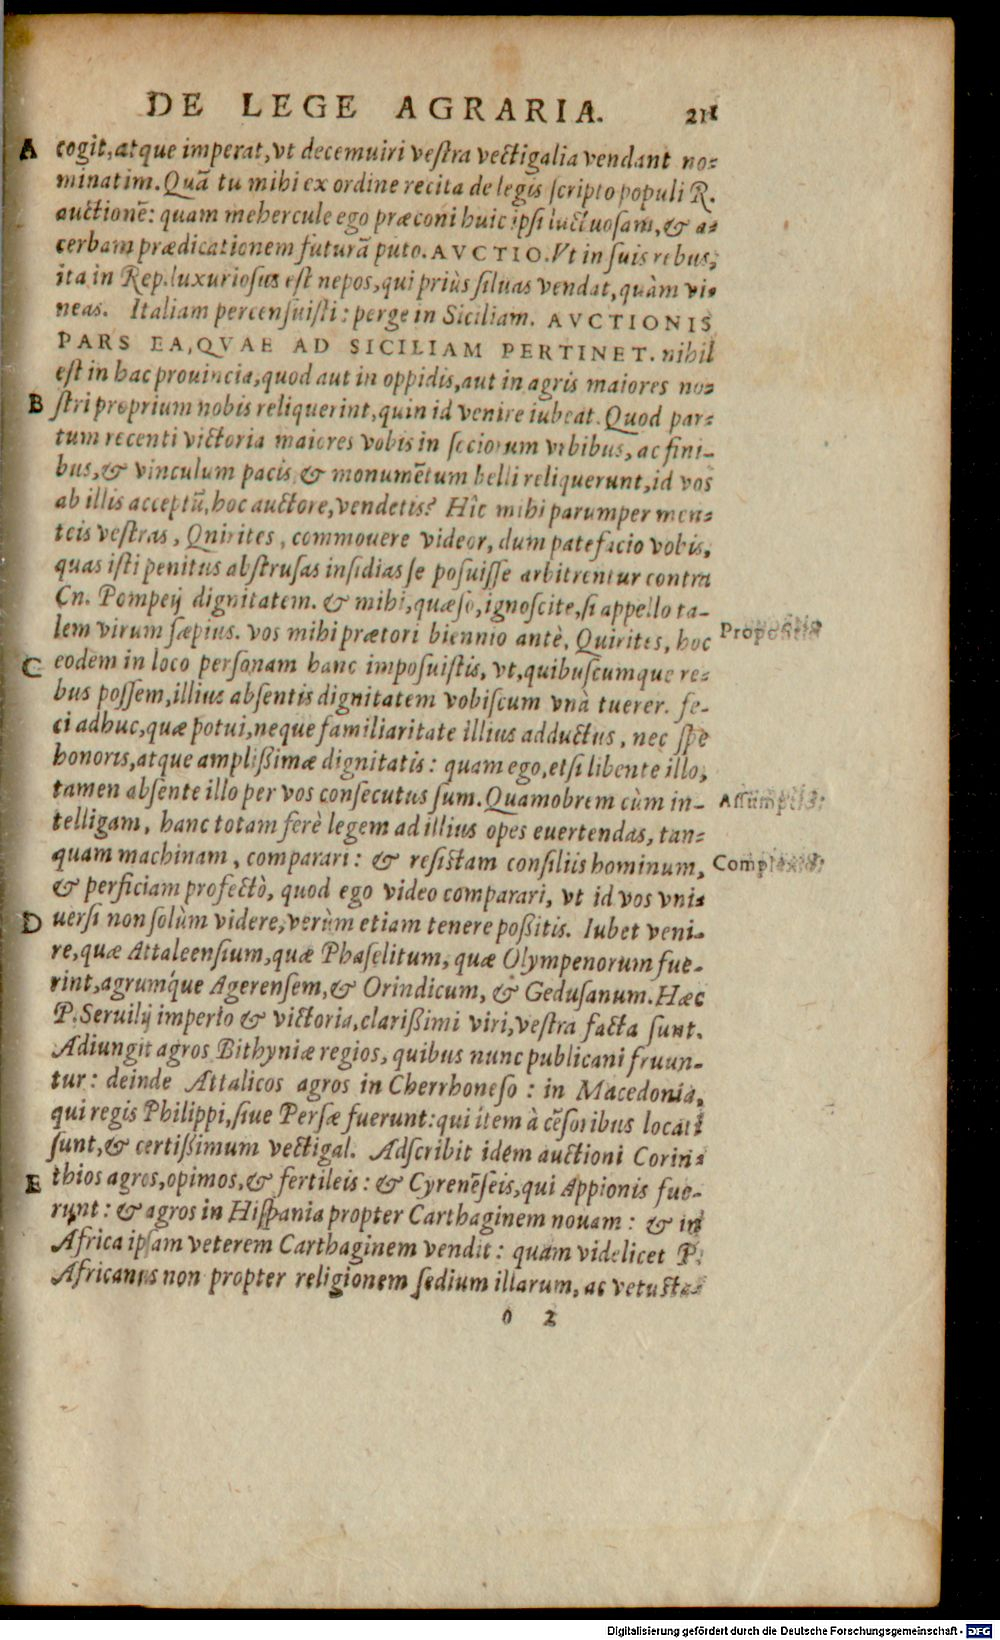 DE LEGE AGRARIA. 211
A cogit, atque imperat, vt decemuiri vestra vectigalia vendant no-
minatim. Quā tu mihi ex ordine recita de legis scripto populi R.
auctionē: quam mehercule ego præconi huic ipsi luctuosam, & a-
cerbam prædicationem futurā puto. AVCTIO. Vt in suis rebus,
ita in Rep. luxuriosus est nepos, qui priùs siluas vendat, quàm vi-
neas. Italiam percensuisti: perge in Siciliam. AVCTIONIS
PARS EA, QVAE AD SICILIAM PERTINET. nihil
est in hac prouincia, quod aut in oppidis, aut in agris maiores no-
B stri proprium nobis reliquerint, quin id venire iubeat. Quod par-
tum recenti victoria maiores vobis in sociorum vrbibus, ac fini-
bus, & vinculum pacis, & monumētum belli reliquerunt, id vos
ab illis acceptū, hoc auctore, vendetis? Hîc mihi parumper men-
teis vestras, Qnirites, commouere videor, dum patefacio vobis,
quas isti penitus abstrusas insidias se posuisse arbitrentur contra
Cn. Pompeij dignitatem. & mihi, quæso, ignoscite, si appello ta-
lem virum sæpius. vos mihi prætori biennio antè, Quirites, hoc
Propositio
C eodem in loco personam hanc imposuistis, vt, quibuscumque re-
bus possem, illius absentis dignitatem vobiscum vnà tuerer. fe-
ci adhuc, quæ potui, neque familiaritate illius adductus, nec spe
honoris, atque amplißimæ dignitatis: quam ego, etsi libente illo,
tamen absente illo per vos consecutus sum. Quamobrem cùm in-
Assumptio.
telligam, hanc totam ferè legem ad illius opes euertendas, tan-
quam machinam, comparari: & resistam consiliis hominum,
Complexio.
& perficiam profectò, quod ego video comparari, vt id vos vni-
D uersi non solùm videre, verùm etiam tenere poßitis. Iubet veni-
re, quæ Attaleensium, quæ Phaselitum, quæ Olympenorum fue-
rint, agrumq́ue Agerensem, & Orindicum, & Gedusanum. Hæc
P. Seruilij imperio & victoria, clarißimi viri, vestra facta sunt.
Adiungit agros Bithyniæ regios, quibus nunc publicani fruun-
tur: deinde Attalicos agros in Cherrhoneso: in Macedonia,
qui regis Philippi, siue Persæ fuerunt: qui item à cēsoribus locati
sunt, & certißimum vectigal. Adscribit idem auctioni Corin-
E thios agros, opimos, & fertileis: & Cyrenēseis, qui Appionis fue-
runt: & agros in Hispania propter Carthaginem nouam: & in
Africa ipsam veterem Carthaginem vendit: quam videlicet P.
Africanus non propter religionem sedium illarum, ac vetusta-
o 2
Digitalisierung gefördert durch die Deutsche Forschungsgemeinschaft - DFG